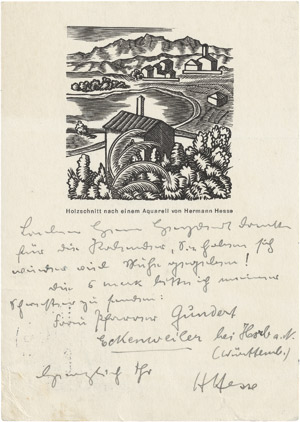 Holzschnitt nach einem Aquarell von Hermann Hesse
danken
für die Kalender. Sie haben sich
wieder viel Mühe gegeben!
Die 5 Mark bitte ich meiner
Schwester zu senden:
Frau Pfarrer Gundert
Eckenweiler bei Horb a. N.
(Württemb.)
Herzlich Ihr
HHesse